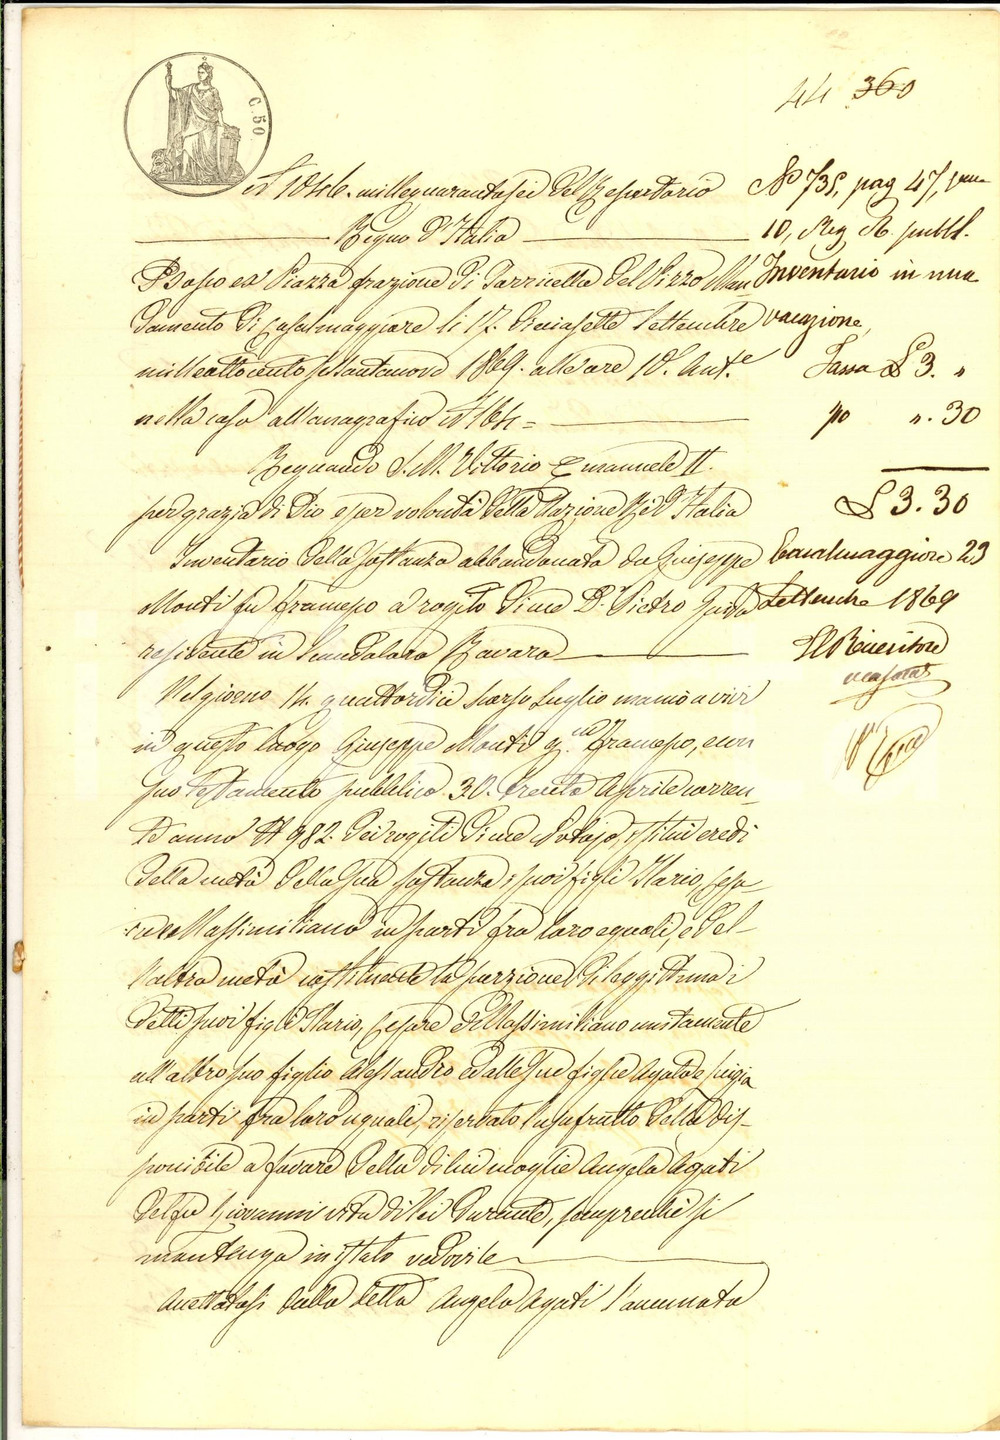 C. 50
44 360
N° 1046. millequarantasei del Repertorio
Regno d'Italia
Dosso ed Piazza frazione di Torricella del Pizzo Man
damento di Casalmaggiore li 17. diciasette Settembre
milleottocento sessantanove 1869. alle ore 10. Ant.e
nella casa all'anagrafico N° 164 =
Regnando S. M. Vittorio Emanuele II.
per grazia di Dio e per volontà della Nazione Re d'Italia
Inventario della sostanza abbandonata da Giuseppe
Monti fu Francesco a rogito di me Dr. Pietro
residente in Scandolara Ravara
Nel giorno 14. quattordici scorso Luglio mancò a vivi
in questo luogo Giuseppe Monti qm Francesco, e con
suo testamento pubblico 30. trenta Aprile corren-
te anno N° 982. dei rogiti di me Notajo, istituì eredi
della metà della sua sostanza i suoi figli Ilario, Cesa-
re e Massimiliano in parti fra loro eguali, e del-
l'altra metà costituente la porzione di leggittima i
detti suoi figli Ilario, Cesare e Massimiliano unitamente
all'altro suo figlio Alessandro ed alle sue figlie Agata e Luigia
in parti fra loro uguali, riservato l'usufrutto della dis-
ponibile a favore della di lui moglie Angela Agati
del fu Giovanni vita di lei durante, sempreché si
mantenga in istato vedovile
Accettatasi dalla detta Angela Agati l'accennata
N° 735, pag 47,
10, Reg. A. pubbl.
Inventario in una
vacazione,
Tassa £ 3. "
" . 30
£ 3.30
Casalmaggiore 23
Settembre 1869
Il Ricevitore